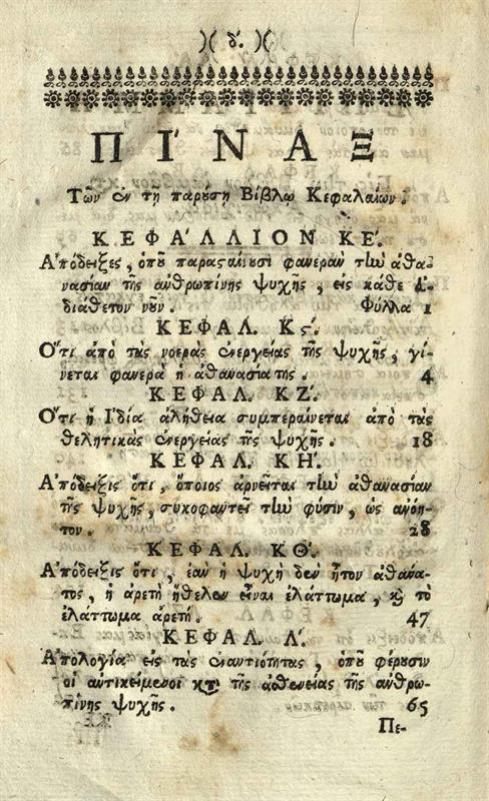 )( δ'. )(
ΠΙ'ΝΑΞ
Τῶν ἐν τῇ παρούσῃ Βίβλῳ Κεφαλαίων.
ΚΕΦΑ'ΛΛΙΟΝ ΚΕ'.
Ἀπόδειξες, ὁποῦ παραςαίνουσι φανερὰν τὴν ἀθα-
νασίαν τῆς ἀνθρωπίνης ψυχῆς, εἰς κάθε εὐ-
διάθετον νοῦν. Φύλλα 1
ΚΕΦΑΛ. Κϛ'.
Ὅτι ἀπὸ τὰς νοερὰς ἐνεργείας τῆς ψυχῆς, γί-
νεται φανερὰ ἡ ἀθανασία της. 4
ΚΕΦΑΛ. ΚΖ'.
Ὅτι ἡ Ἰδία ἀλήθεια συμπεραίνεται ἀπὸ τὰς
θελητικὰς ἐνεργείας τῆς ψυχῆς. 18
ΚΕΦΑΛ. ΚΗ'.
Ἀπόδειξις ὅτι, ὅποιος ἀρνεῖται τὴν ἀθανασίαν
τῆς ψυχῆς, συκοφαντεῖ τὴν φύσιν, ὡς ἀνόη-
τον. 28
ΚΕΦΑΛ. ΚΘ'.
Ἀπόδειξις ὅτι, ἐὰν ἡ ψυχὴ δὲν ἦτον ἀθάνα-
τος, ἡ ἀρετὴ ἤθελεν εἶναι ἐλάττωμα, ϗ τὸ
ἐλάττωμα ἀρετή. 47
ΚΕΦΑΛ. Λ'.
Ἀπολογία εἰς τὰς ἐναντιότητας, ὁποῦ φέρουσιν
οἱ ἀντικείμενοι κτ' τῆς ἀσθενείας τῆς ἀνθρω-
πίνης ψυχῆς. 65
Πε-